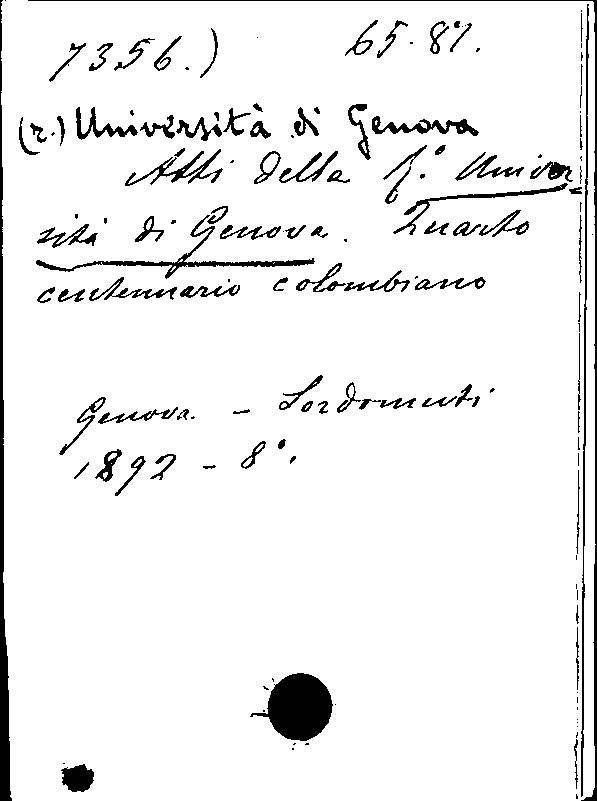 7356.) 65.87.
(r.) Università di Genova
Atti della R.ª Univer-
sità di Genova. Quarto
centennario colombiano
Genova. - Sordomuti
1892 - 8°.